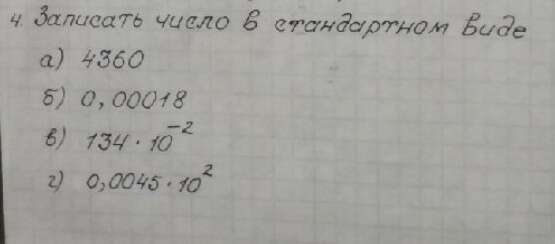 4. Записать число в стандартном виде
а) 4360
б) 0,00018
в) 134 · 10⁻²
г) 0,0045 · 10²